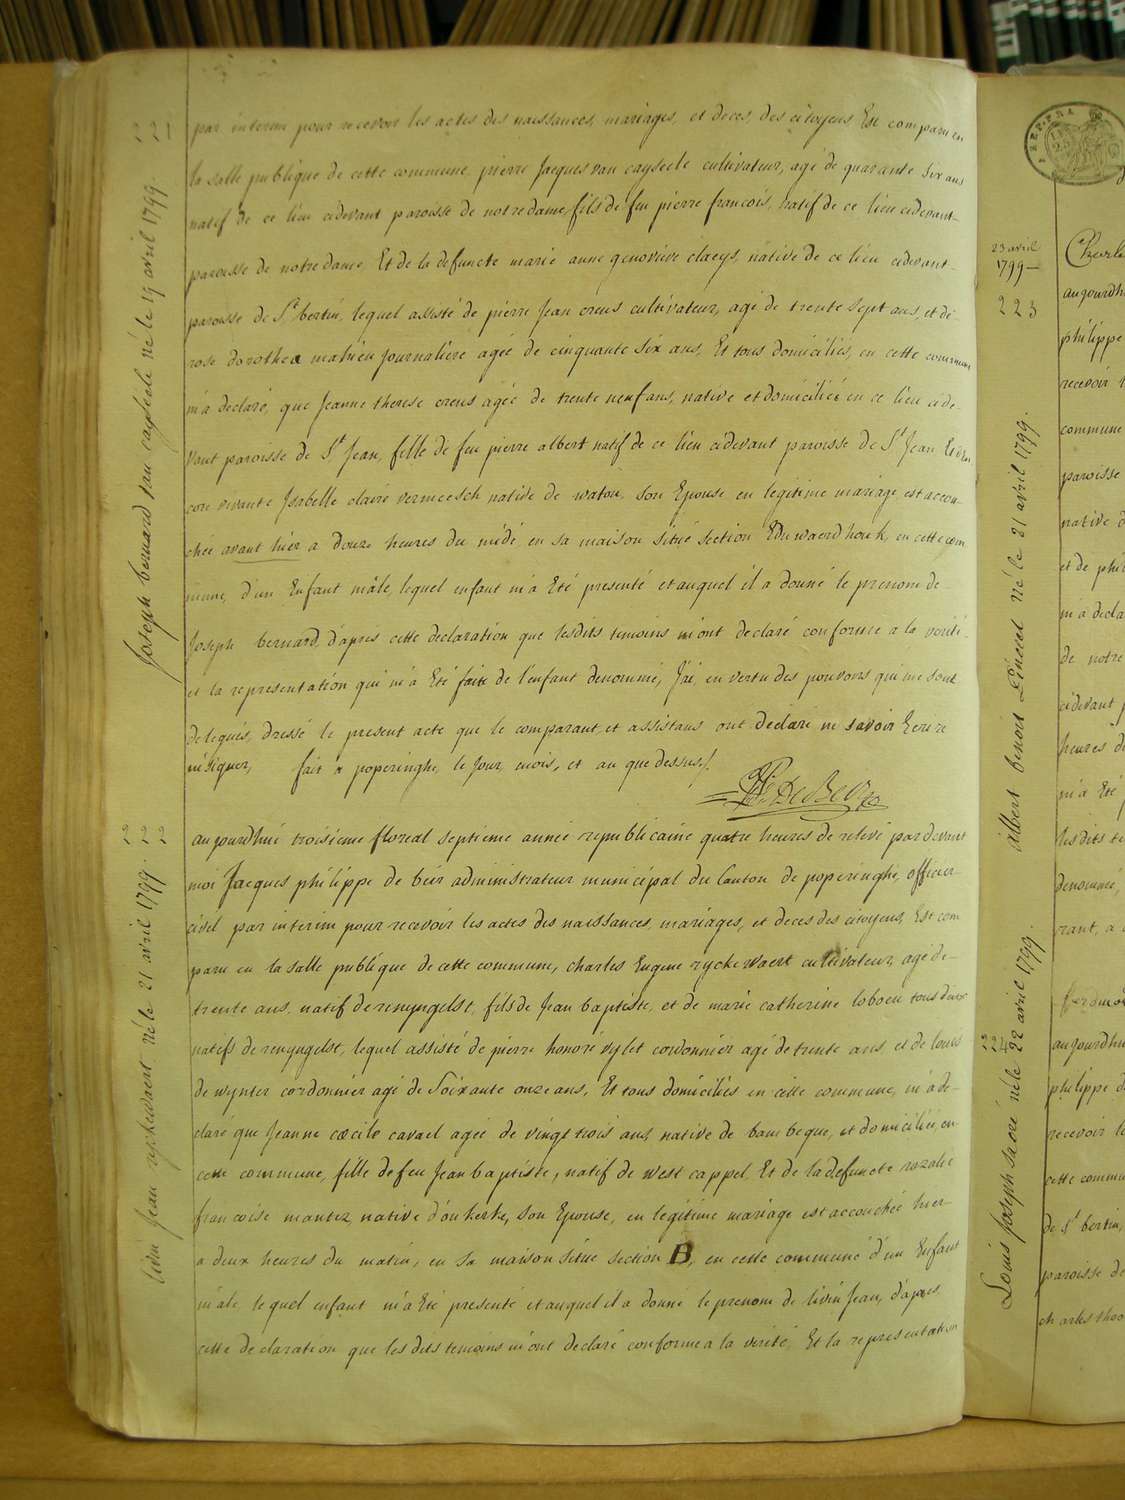 221
Joseph bernard van cayseele né le 19 avril 1799.
par interim pour recevoir les actes des naissances, mariages, et deces, des citoyens Est comparu en
la salle publique de cette commune, pierre Jacques van cayseele cultivateur, agé de quarante six ans
natif de ce lieu cidevant paroisse de notredame, fils de feu pierre francois, natif de ce lieu cidevant
paroisse de notredame, Et de la defuncte marie anne genovive claeys, native de ce lieu cidevant
paroisse de St bertin, lequel assisté de pierre Jean creus cultivateur, agé de trente sept ans, et de
rose dorothea mahieu Journaliere agée de cinquante six ans, Et tous domiciliés, en cette commune
m'a declaré, que Jeanne therese creus agée de trente neuf ans, native et domiciliée en ce lieu cide-
vant paroisse de St Jean, fille de feu pierre albert natif de ce lieu cidevant paroisse de St Jean Et d'en
core vivante Isabelle claire vermeesch native de watou, son Epouse en legitime mariage, est accou-
chée avant hier a douze heures du midi, en sa maison située section Eduwaerdhouk, en cette com
mune, d'un Enfant mâle, lequel enfant m'a Eté presenté et auquel il a donné le prenom de
Joseph bernard, d'apres cette declaration que lesdits temoins m'ont declaré conforme a la verité
et la representation qui m'a Eté faite de l'enfant denommé, J'ai, en vertu des pouvoirs qui me sont
delegués, dressé le present acte que le comparant et assistans ont declaré ne savoir Ecrire
ni signer, fait a poperinghe, le Jour, mois, et an que dessus/.
DeBeir
222
livin Jean ryckewaert né le 21 avril 1799.
aujourdhui troisieme floreal septieme année republicaine quatre heures de relevé pardevant
moi Jacques philippe de beir administrateur municipal du Canton de poperinghe, officier
civil par interim pour recevoir les actes des naissances, mariages, et deces des citoyens, Est com
paru en la salle publique de cette commune, charles Eugene ryckewaert cultivateur, agé de
trente ans, natif de renyngelst, fils de Jean baptiste, et de marie catherine loboeu tous deux
natifs de renyngelst, lequel assisté de pierre honoré vylet cordonnier agé de trente ans, et de louis
de wynter cordonnier agé de Soixante onze ans, Et tous domiciliés en cette commune, m'a de-
claré que Jeanne cœcile cavael agée de vingt trois ans, native de bambeque, et domiciliée, en
cette commune, fille de feu Jean baptiste, natif de west cappel, Et de la defuncte rozalie
francoise mantez native d'ou kerke, son Epouse, en legitime mariage est accouchée hier
a deux heures du matin, en sa maison située section B, en cette commune d'un Enfant
mâle, lequel enfant m'a Eté presenté et auquel il a donné le prenom de livin Jean, d'apres
cette declaration que lesdits temoins m'ont declaré conforme a la verité, Et la representation
23 avril
1799 —
223
albert benoit né le 21 avril 1799.
224
Louis Joseph né le 22 avril 1799.
aujourdh
philippe
recevoir
commune
paroisse
native d
et de phi
m'a decla
de notre
cidevant
heures d
m'a Eté
lesdits te
denommé,
aujourdhu
philippe d
recevoir l
cette commu
de St bertin,
paroisse de